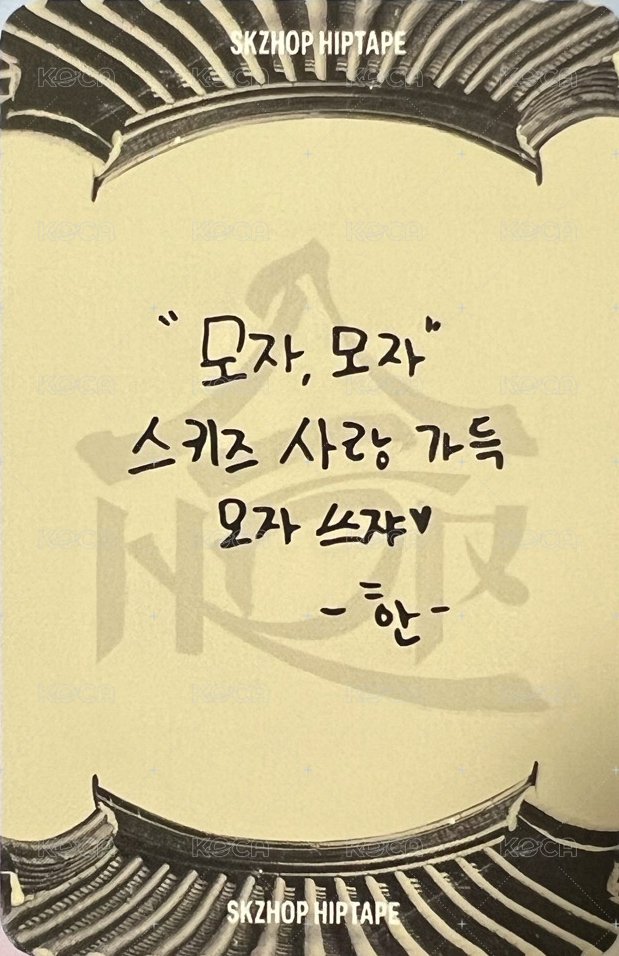 SKZHOP HIPTAPE
"모자, 모자"
스키즈 사랑 가득
모자 쓰쟈♥
-한-
SKZHOP HIPTAPE